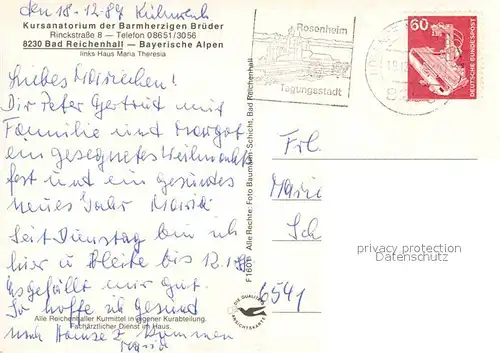 den 18-12.87
Kursanatorium der Barmherzigen Brüder
Rinckstraße 8 — Telefon 08651/3056
8230 Bad Reichenhall — Bayerische Alpen
links Haus Maria Theresia
Liebes Mariechen!
Dir Peter Gertrud mit
Familie und Margot
ein gesegnetes Weihnachts
fest und ein gesundes
neues Jahr
Seit Dienstag bin ich
hier u bleibe bis 12.1.88
Es gefällt mir gut.
So hoffe ich gesund
nach Hause z kommen
Maria
Alle Reichenhaller Kurmittel in eigener Kurabteilung.
Fachärztlicher Dienst im Haus.
F1601 Alle Rechte: Foto Baumann-Schicht, Bad Reichenhall
Rosenheim
Tagungsstadt
60
DEUTSCHE BUNDESPOST
Frl.
Sch
6541
DIE QUALITÄTS
ANSICHTSKARTE
privacy protection
Datenschutz